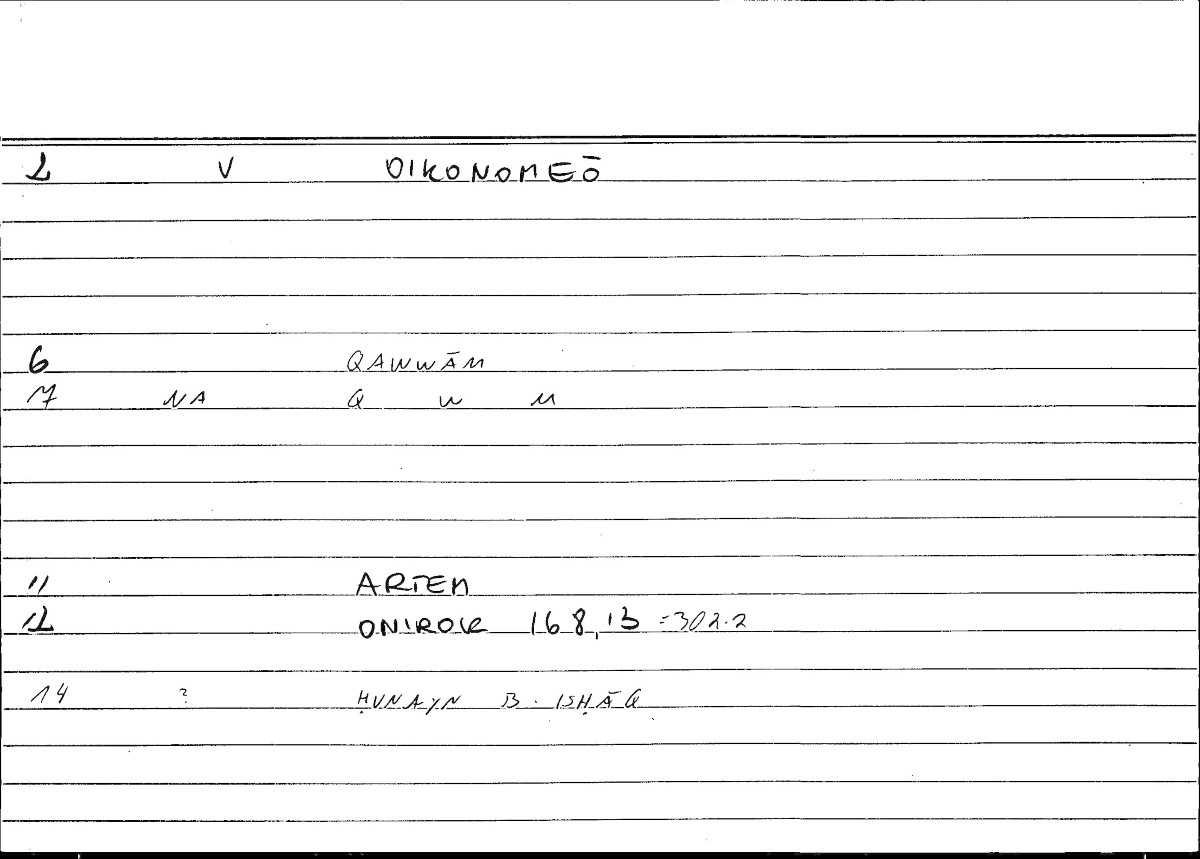 2 V OIKONOMEŌ
6 QAWWĀM
7 NA Q W M
11 ARTEM
12 ONIROCR 168,13 =302.2
14 ? ḤUNAYN B. ISḤĀQ